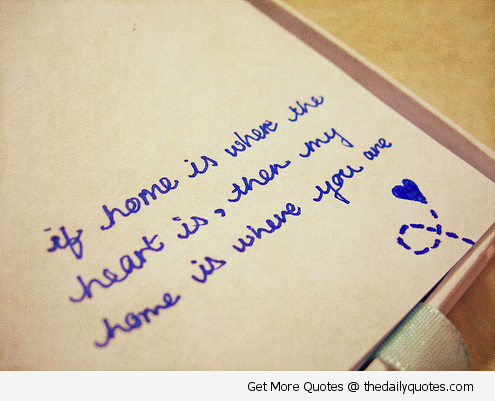 if home is where the
heart is, then my
home is where you are
Get More Quotes @ thedailyquotes.com